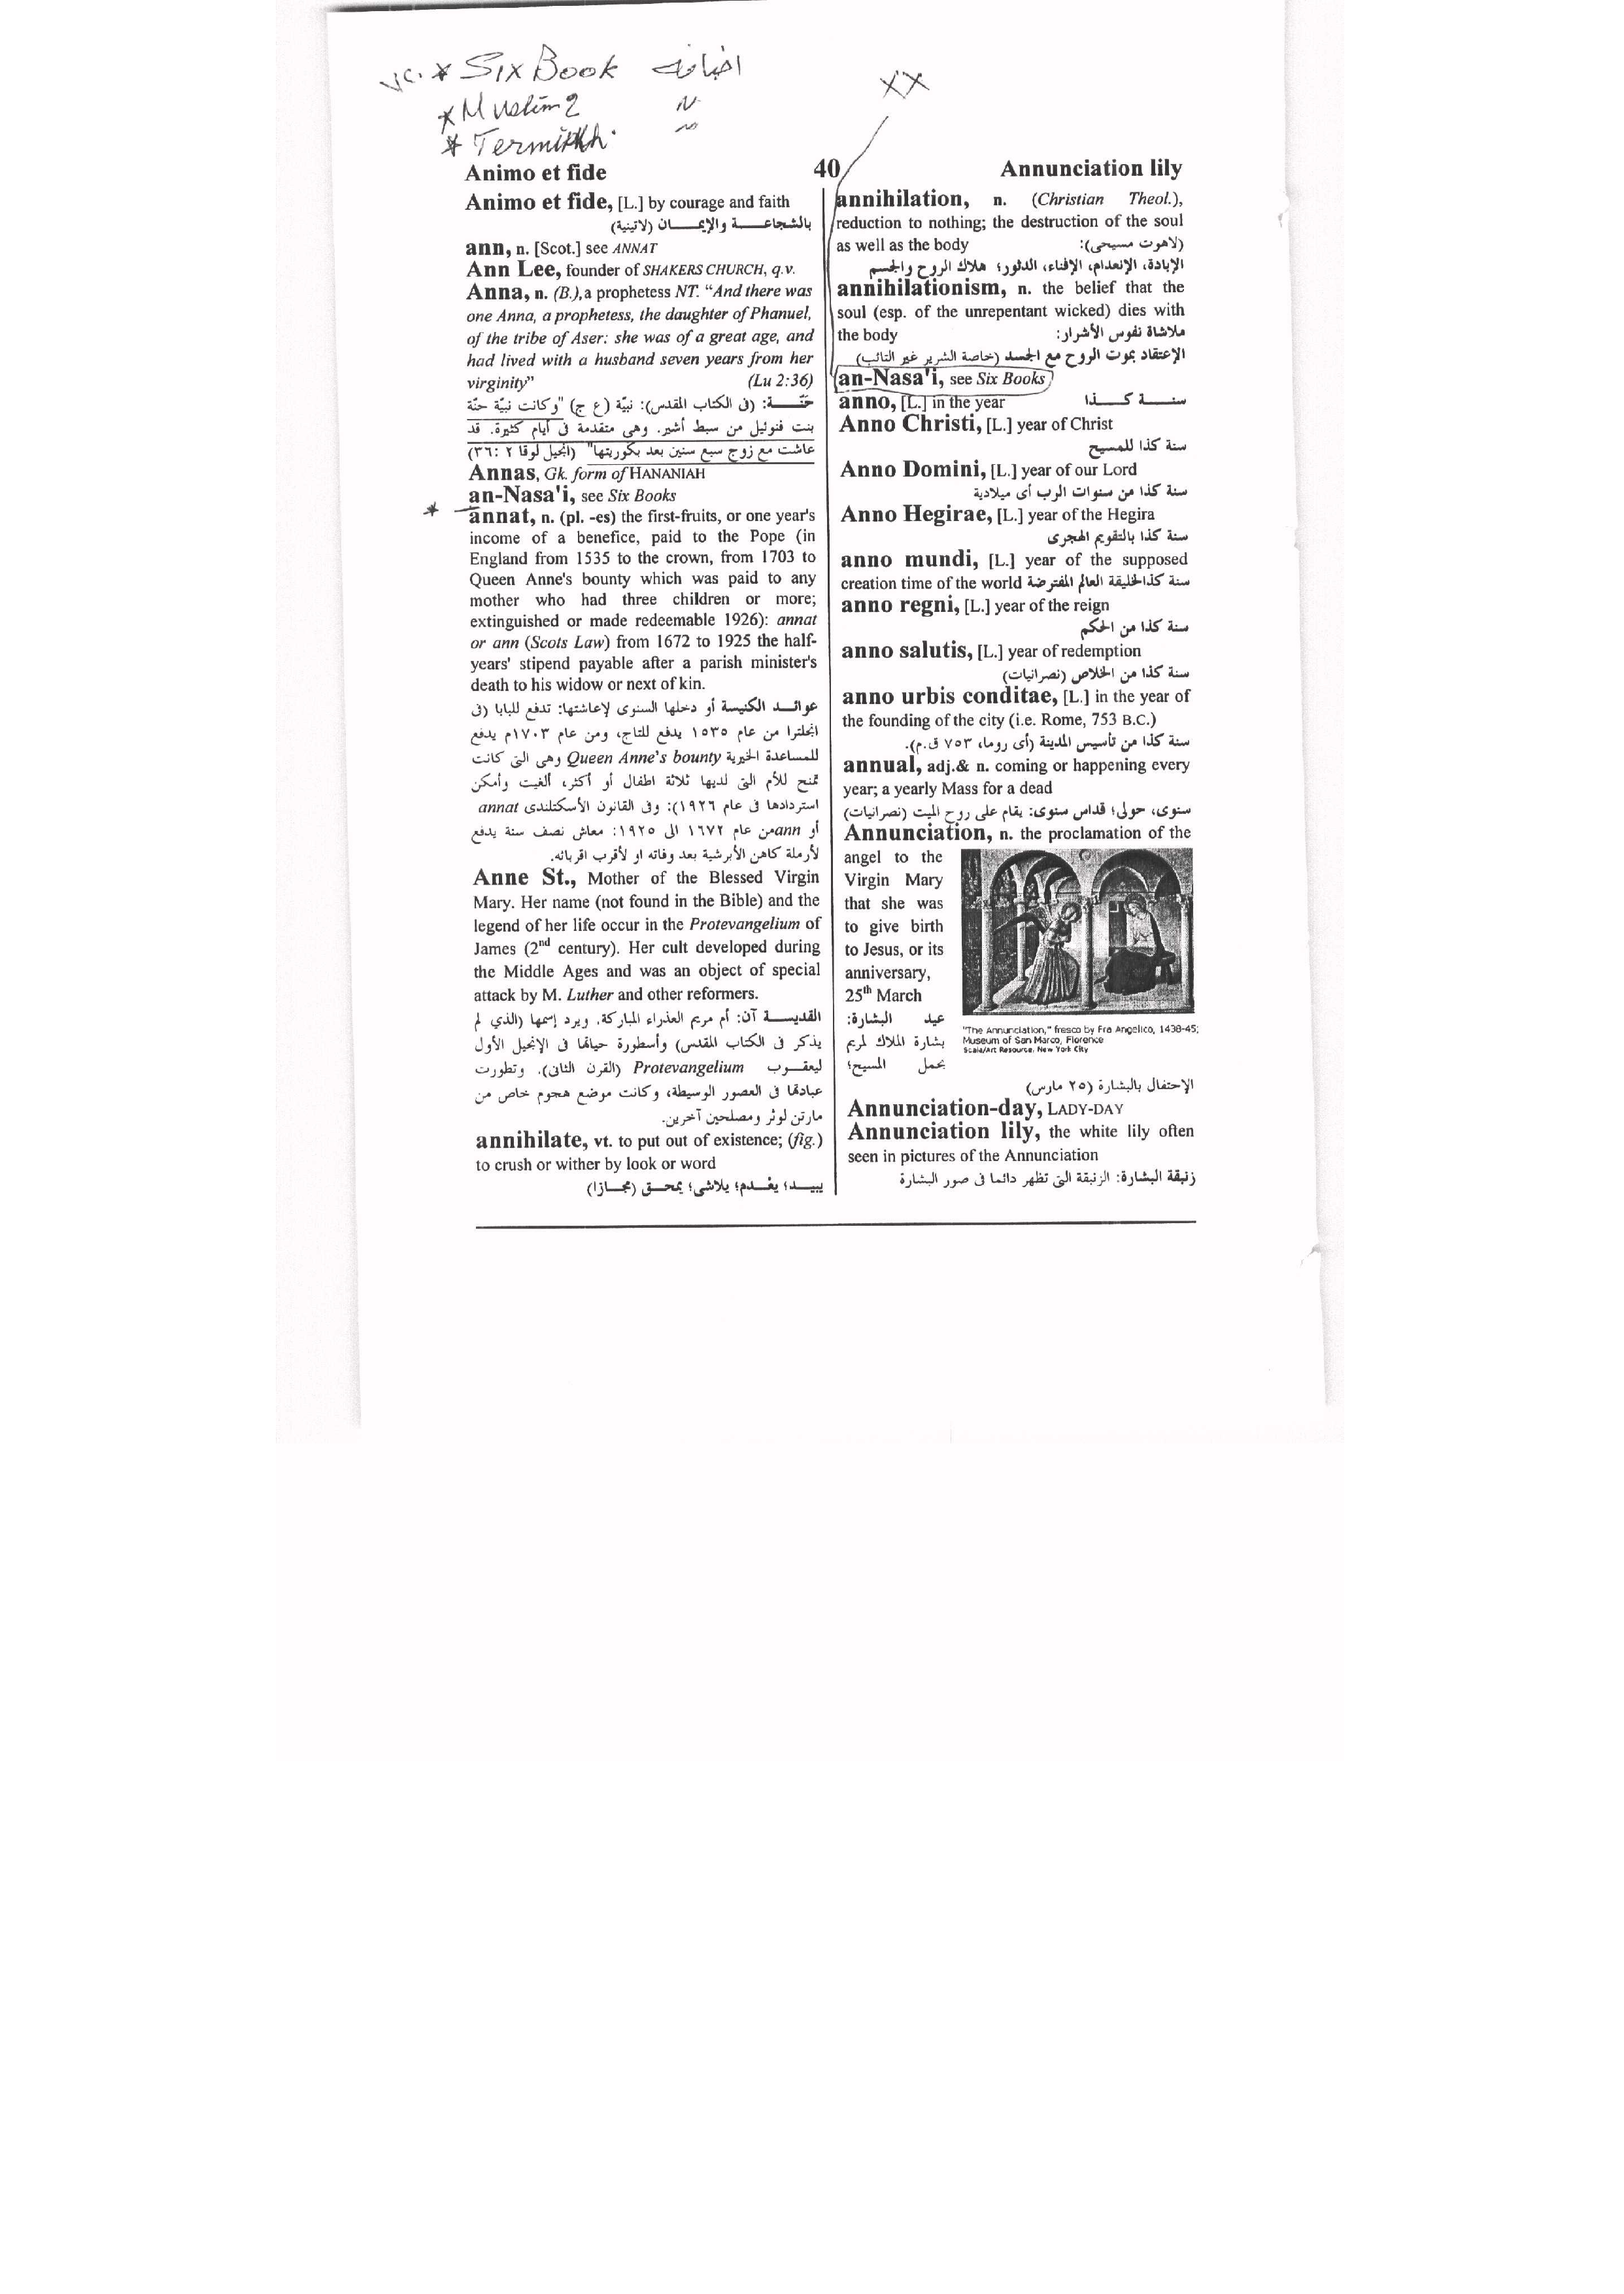 * Six Book اضافه
* Muslim 2
XX
Animo et fide
40
Annunciation lily
Animo et fide, [L.] by courage and faith
بالشجاعـــة والإيمـــان (لاتينية)
ann, n. [Scot.] see ANNAT
Ann Lee, founder of SHAKERS CHURCH, q.v.
Anna, n. (B.), a prophetess NT. “And there was
one Anna, a prophetess, the daughter of Phanuel,
of the tribe of Aser: she was of a great age, and
had lived with a husband seven years from her
virginity” (Lu 2:36)
حَنّـــة: (فى الكتاب المقدس): نبيّة (ع ج) "وكانت نبيّة حنّة
بنت فنوئيل من سبط أشير. وهى متقدمة فى أيام كثيرة. قد
عاشت مع زوج سبع سنين بعد بكوريتها" (انجيل لوقا ٢ :٣٦)
Annas, Gk. form of HANANIAH
an-Nasa'i, see Six Books
*
annat, n. (pl. -es) the first-fruits, or one year's
income of a benefice, paid to the Pope (in
England from 1535 to the crown, from 1703 to
Queen Anne's bounty which was paid to any
mother who had three children or more;
extinguished or made redeemable 1926): annat
or ann (Scots Law) from 1672 to 1925 the half-
years' stipend payable after a parish minister's
death to his widow or next of kin.
عوائـد الكنيسة أو دخلها السنوى لإعاشتها: تدفع للبابا (فى
انجلترا من عام ١٥٣٥ يدفع للتاج، ومن عام ١٧٠٣م يدفع
للمساعدة الخيرية Queen Anne's bounty وهى التى كانت
تمنح للأم التى لديها ثلاثة اطفال أو أكثر، ألغيت وأمكن
استردادها فى عام ١٩٢٦): وفى القانون الأسكتلندى annat
أو annمن عام ١٦٧٢ الى ١٩٢٥: معاش نصف سنة يدفع
لأرملة كاهن الأبرشية بعد وفاته او لأقرب اقربائه.
Anne St., Mother of the Blessed Virgin
Mary. Her name (not found in the Bible) and the
legend of her life occur in the Protevangelium of
James (2nd century). Her cult developed during
the Middle Ages and was an object of special
attack by M. Luther and other reformers.
القديســة آن: أم مريم العذراء المباركة. ويرد إسمها (الذي لم
يذكر فى الكتاب المقدس) وأسطورة حياتها فى الإنجيل الأول
ليعقــوب Protevangelium (القرن الثانى). وتطورت
عبادتها فى العصور الوسيطة، وكانت موضع هجوم خاص من
مارتن لوثر ومصلحين آخرين.
annihilate, vt. to put out of existence; (fig.)
to crush or wither by look or word
يبيـــد؛ يعْـدم؛ يلاشى؛ يمحـــق (مجــازا)
annihilation, n. (Christian Theol.),
reduction to nothing; the destruction of the soul
as well as the body (لاهوت مسيحى):
الإبادة، الإنعدام، الإفناء، الدثور؛ هلاك الروح والجسم
annihilationism, n. the belief that the
soul (esp. of the unrepentant wicked) dies with
the body ملاشاة نفوس الأشرار:
الإعتقاد بموت الروح مع الجسد (خاصة الشرير غير التائب)
an-Nasa'i, see Six Books
anno, [L.] in the year سنـــة كـــذا
Anno Christi, [L.] year of Christ
سنة كذا للمسيح
Anno Domini, [L.] year of our Lord
سنة كذا من سنوات الرب أى ميلادية
Anno Hegirae, [L.] year of the Hegira
سنة كذا بالتقويم الهجرى
anno mundi, [L.] year of the supposed
creation time of the world سنة كذالخليقة العالم المفترضة
anno regni, [L.] year of the reign
سنة كذا من الحكم
anno salutis, [L.] year of redemption
سنة كذا من الخلاص (نصرانيات)
anno urbis conditae, [L.] in the year of
the founding of the city (i.e. Rome, 753 B.C.)
سنة كذا من تأسيس المدينة (أى روما، ٧٥٣ ق.م).
annual, adj.& n. coming or happening every
year; a yearly Mass for a dead
سنوى، حولى؛ قداس سنوى: يقام على روح الميت (نصرانيات)
Annunciation, n. the proclamation of the
angel to the
Virgin Mary
that she was
to give birth
to Jesus, or its
anniversary,
25th March
عيد البشارة:
بشارة الملاك لمريم
بحمل المسيح؛
"The Annunciation," fresco by Fra Angelico, 1438-45;
Museum of San Marco, Florence
Scala/Art Resource, New York City
الإحتفال بالبشارة (٢٥ مارس)
Annunciation-day, LADY-DAY
Annunciation lily, the white lily often
seen in pictures of the Annunciation
زنبقة البشارة: الزنبقة التى تظهر دائما فى صور البشارة